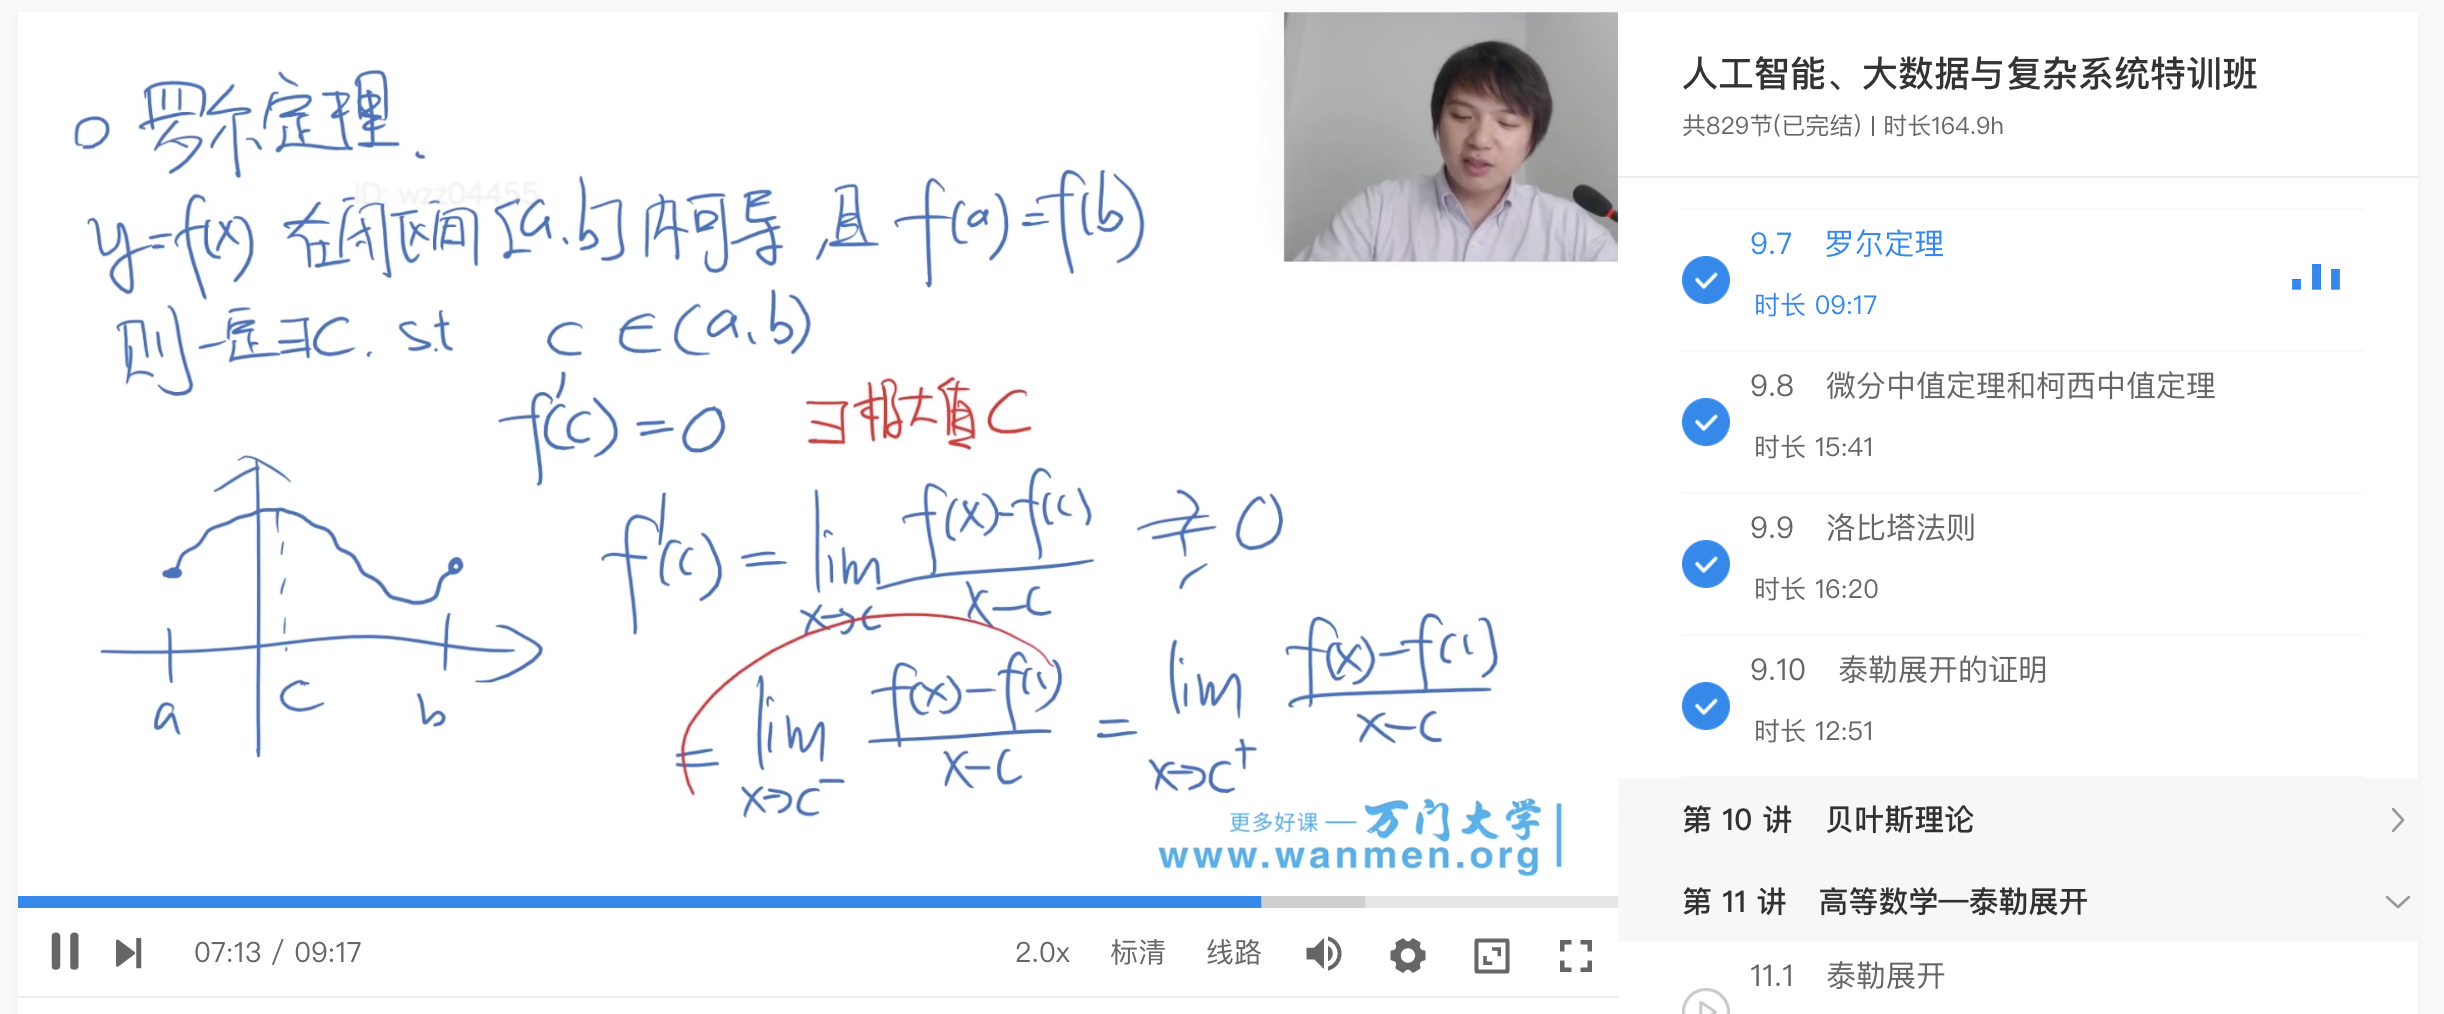 ○ 罗尔定理.
ID: wzz04455
y=f(x) 在闭区间 [a,b] 内可导,且 f(a)=f(b)
则一定∃C. s.t c ∈(a,b)
f'(c)=0 ∃极大值C
f'(c) = lim x→c f(x)-f(c) / x-c ≠ 0
= lim x→c⁻ f(x)-f(c) / x-c = lim x→c⁺ f(x)-f(c) / x-c
a c b
更多好课 — 万门大学
www.wanmen.org
07:13 / 09:17 2.0x 标清 线路
人工智能、大数据与复杂系统特训班
共829节(已完结) | 时长164.9h
9.7 罗尔定理
时长 09:17
9.8 微分中值定理和柯西中值定理
时长 15:41
9.9 洛比塔法则
时长 16:20
9.10 泰勒展开的证明
时长 12:51
第 10 讲 贝叶斯理论
第 11 讲 高等数学—泰勒展开
11.1 泰勒展开